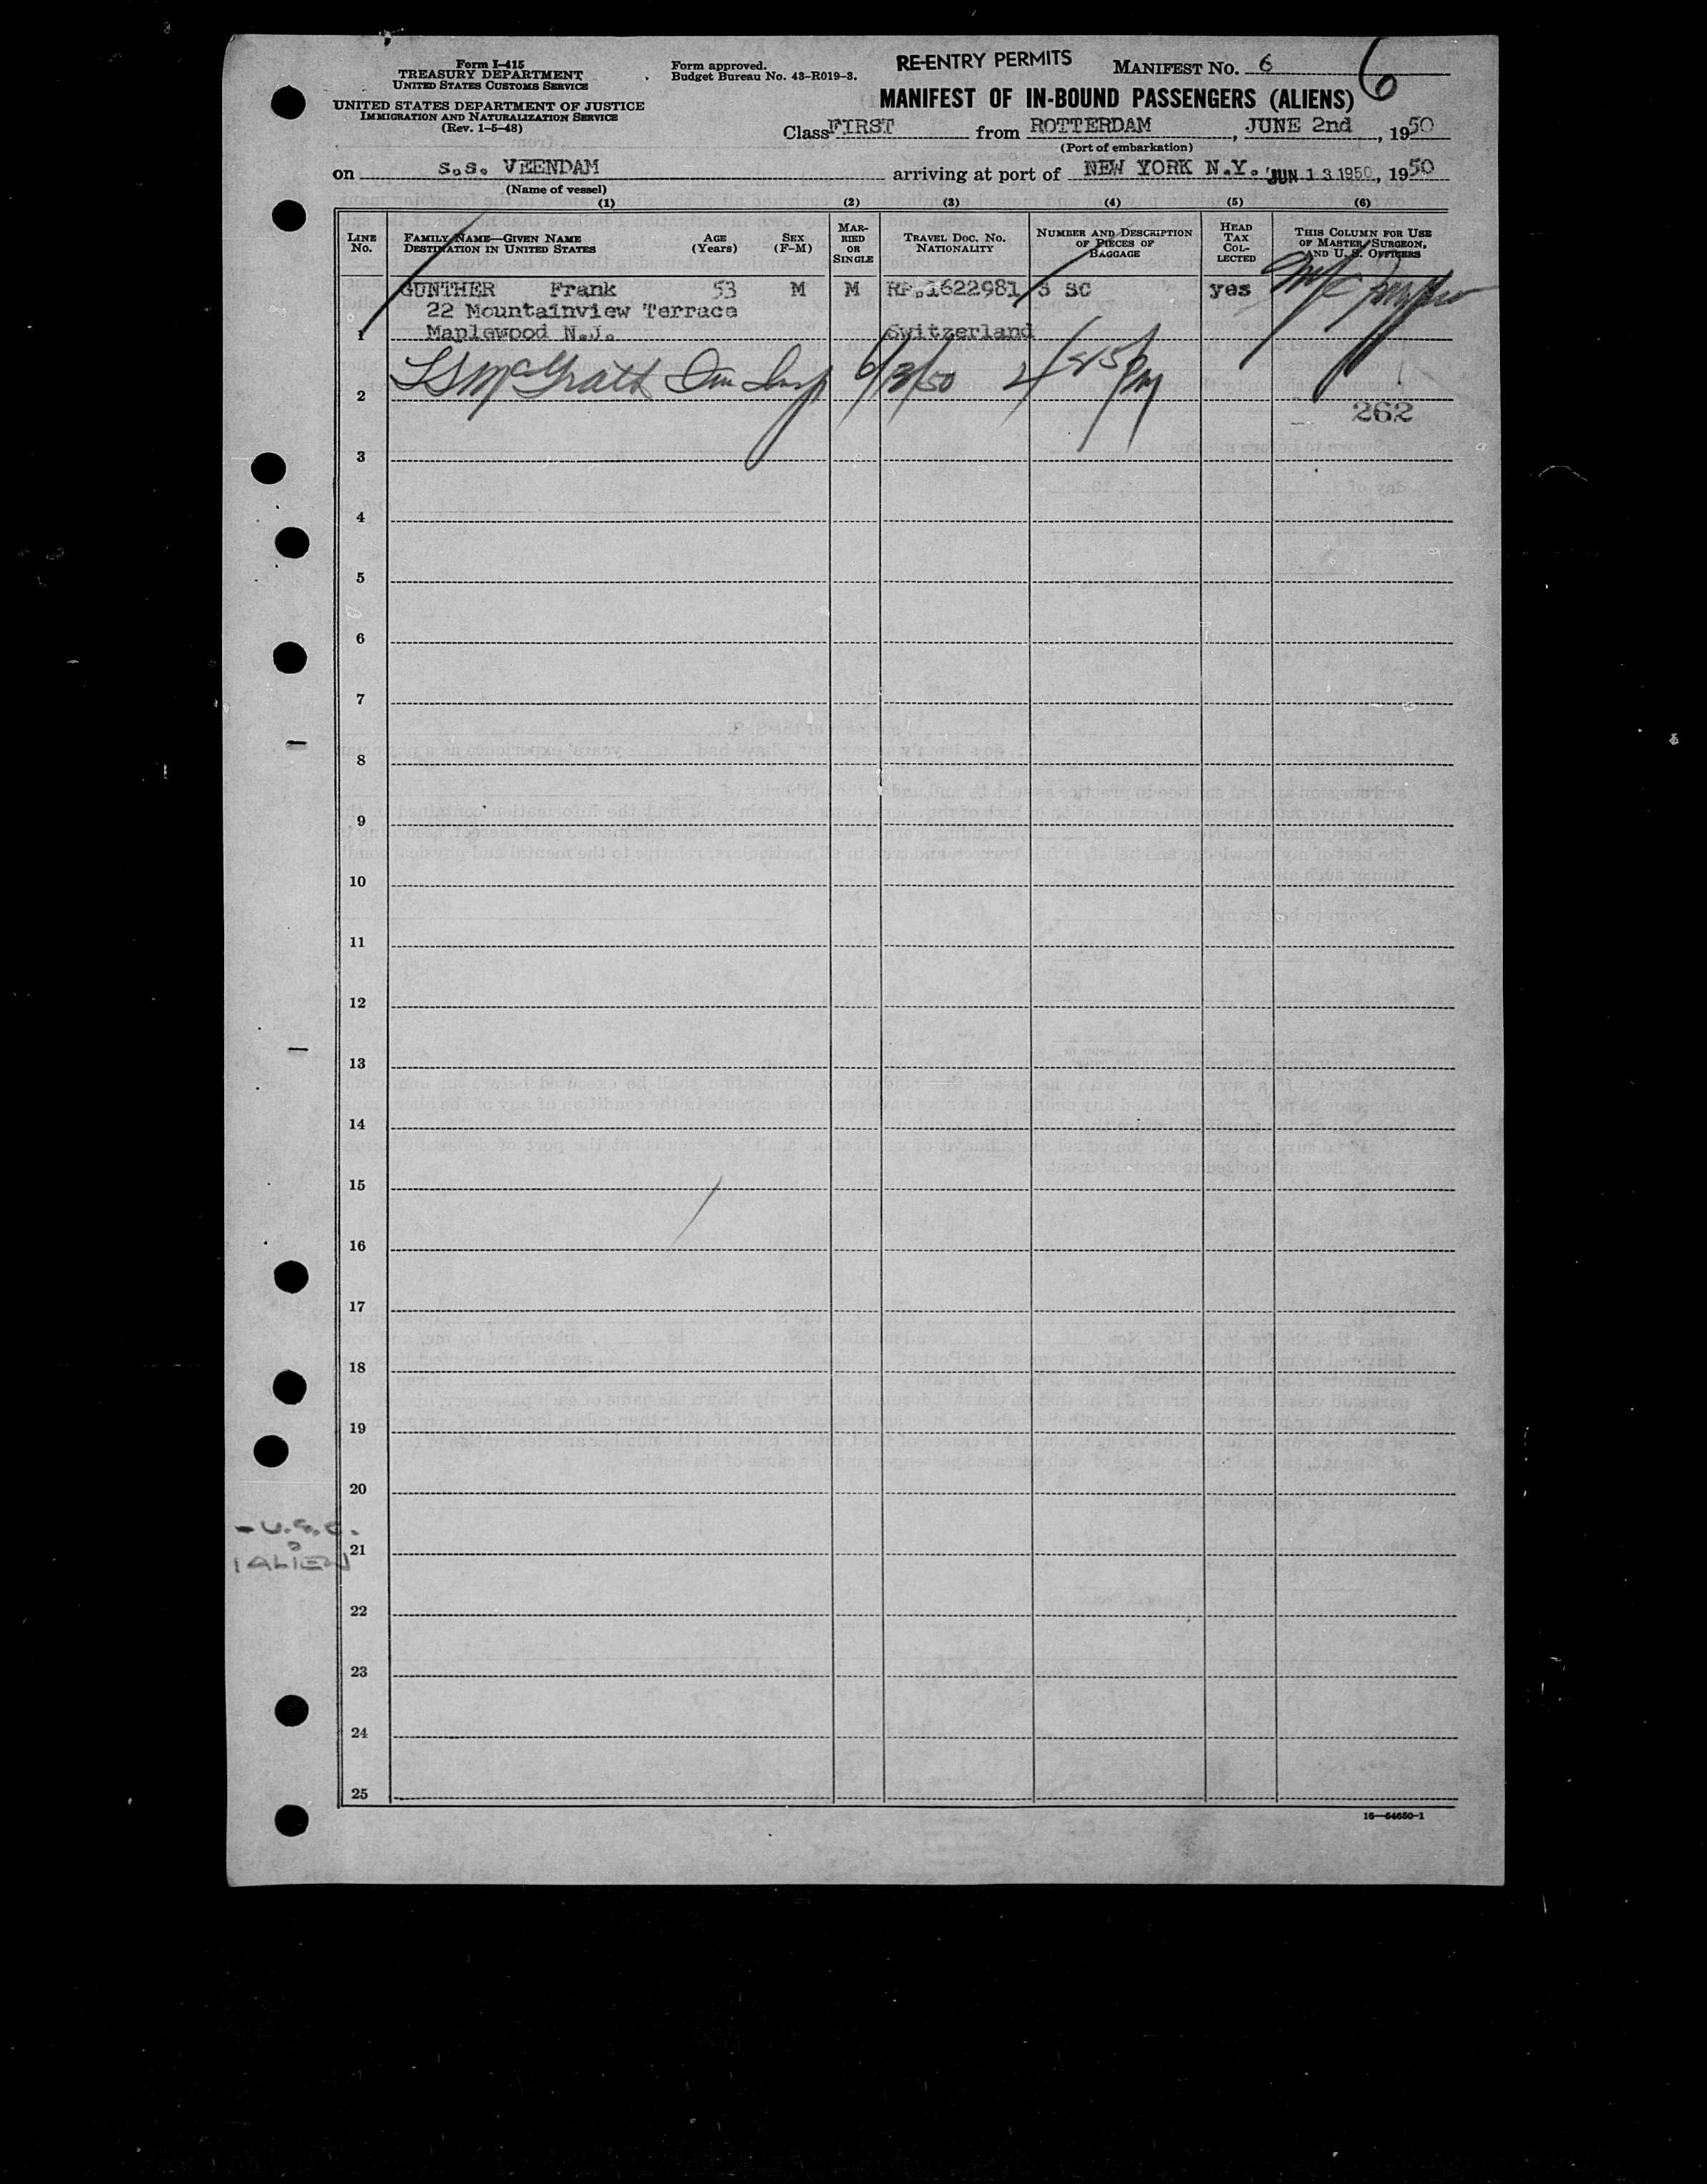 Form I-415
TREASURY DEPARTMENT
UNITED STATES CUSTOMS SERVICE
UNITED STATES DEPARTMENT OF JUSTICE
IMMIGRATION AND NATURALIZATION SERVICE
(Rev. 1-5-48)
Form approved.
Budget Bureau No. 43-R019-3.
RE-ENTRY PERMITS
MANIFEST NO. 6
6
MANIFEST OF IN-BOUND PASSENGERS (ALIENS)
Class FIRST from ROTTERDAM, JUNE 2nd, 1950
(Port of embarkation)
on S.S. VEENDAM arriving at port of NEW YORK N.Y. JUN 13 1950, 1950
(Name of vessel)
(1) (2) (3) (4) (5) (6)
LINE NO. FAMILY NAME—GIVEN NAME DESTINATION IN UNITED STATES AGE (Years) SEX (F-M) MARRIED OR SINGLE TRAVEL DOC. NO. NATIONALITY NUMBER AND DESCRIPTION OF PIECES OF BAGGAGE HEAD TAX COLLECTED THIS COLUMN FOR USE OF MASTER, SURGEON, AND U. S. OFFICERS
GUNTHER Frank 53 M M RP.1622981 3 SC yes
22 Mountainview Terrace
1 Maplewood N.J. Switzerland
LS McGrath Imm Insp 6/13/50 PM
2
262
3
4
5
6
7
8
9
10
11
12
13
14
15
16
17
18
19
20
- U.S.C.
21
1 ALIEN
22
23
24
25
16—54650-1